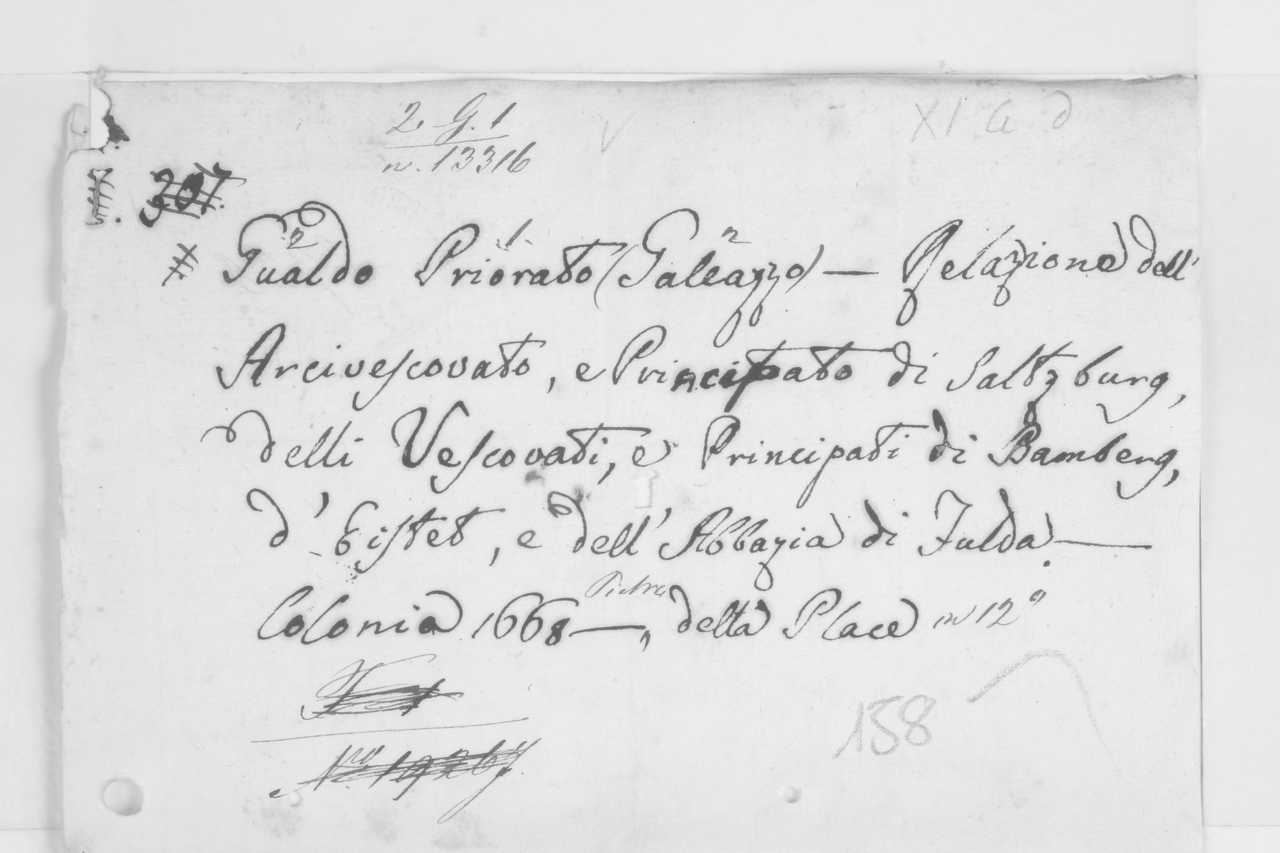 2. G. 1
n. 13316
XI G d
307.
Gualdo Priorato (Galeazzo) — Relazione dell'
Arcivescovato, e Principato di Saltzburg,
delli Vescovati, e Principati di Bamberg,
d'Eistet, e dell'Abbazia di Fulda —
Colonia 1668 —, Pietro della Place in 12º
158